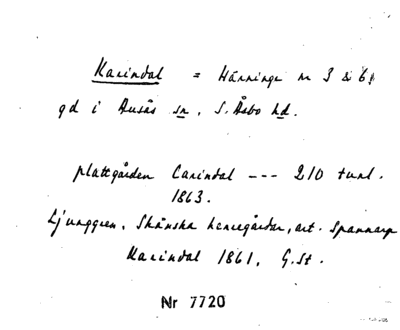 Karindal = Härninge nr 3 & 6,
gd i Ausås sn, S. Åsbo hd.
plattgården Carindal --- 210 tunl.
1863.
Ljunggren, Skånska herregårdar, art. Spannarp
Karindal 1861, G.St.
Nr 7720